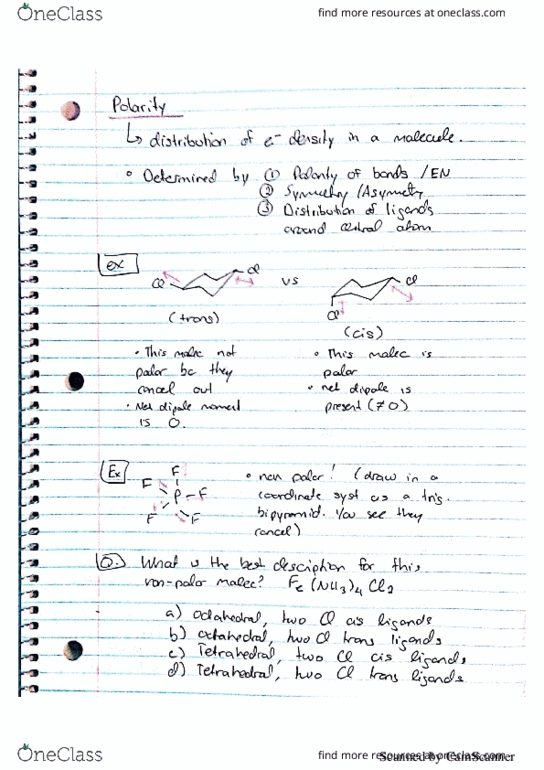 OneClass
find more resources at oneclass.com
Polarity
↳ distribution of e⁻ density in a molecule.
• Determined by ① Polarity of bonds / EN
② Symmetry / Asymmetry
③ Distribution of ligands
around central atom
ex
Cl Cl vs Cl Cl
(trans)
(cis)
• This molec not
polar bc they
cancel out
• Net dipole moment
is 0.
• This molec is
polar
• net dipole is
present (≠0)
Ex
F
F P F
F F
• non polar! (draw in a
coordinate syst as a tris.
bipyramid. You see they
cancel)
Q. What is the best description for this
non-polar molec? Fe(NH3)4 Cl2
a) octahedral, two Cl cis ligands
b) octahedral, two Cl trans ligands
c) Tetrahedral, two Cl cis ligands
d) Tetrahedral, two Cl trans ligands
OneClass
find more resources at oneclass.com
Scanned by CamScanner